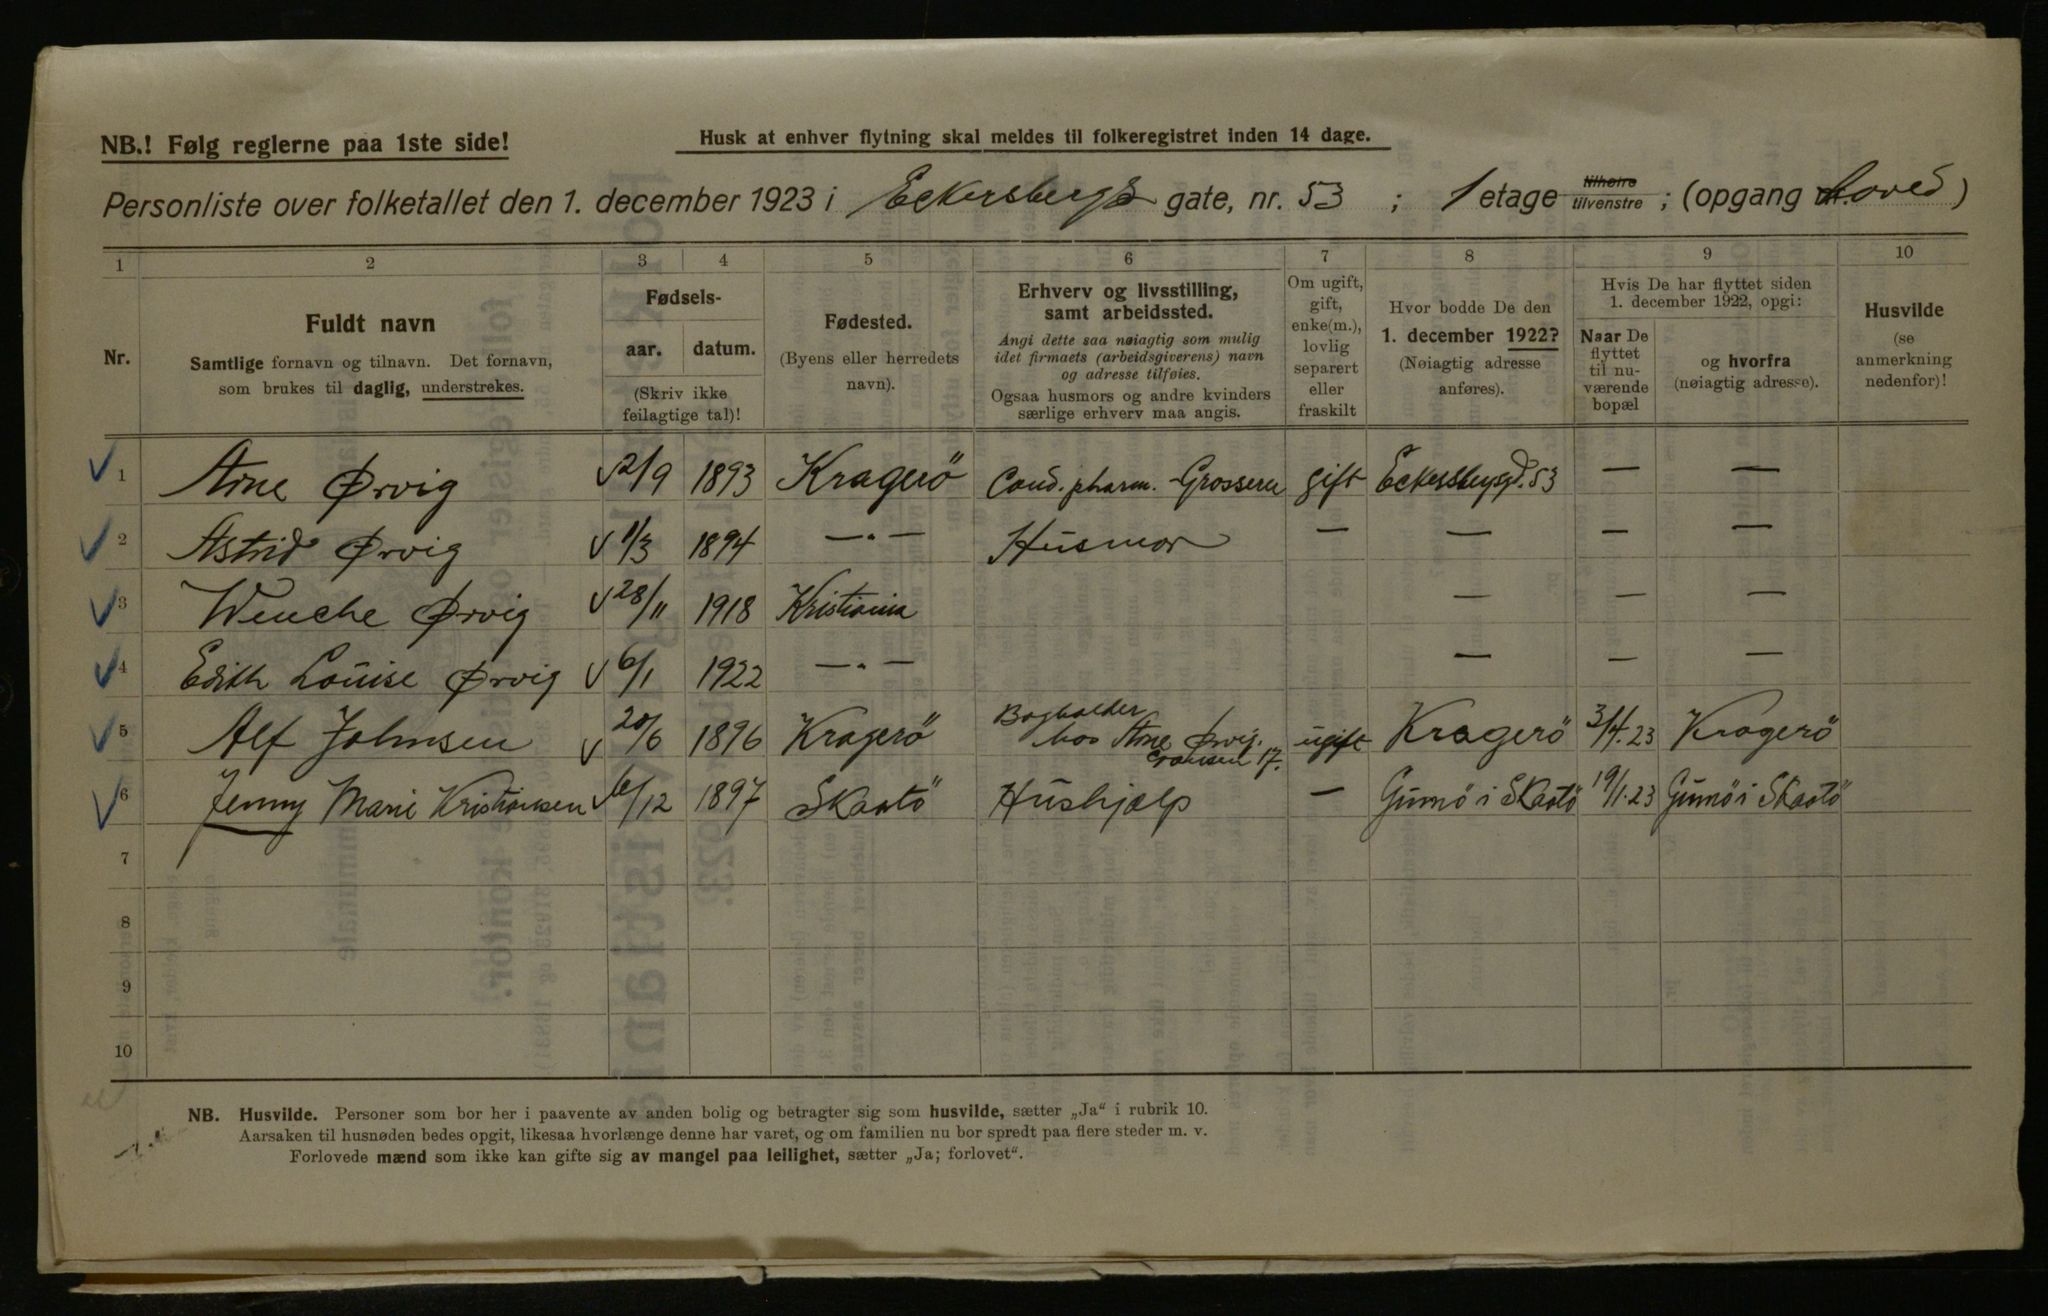 NB.! Følg reglerne paa 1ste side!
Husk at enhver flytning skal meldes til folkeregistret inden 14 dage.
Personliste over folketallet den 1. december 1923 i Eckersbergs gate, nr. 53 ; 1 etage tilhøire tilvenstre ; (opgang Hoved)
1 2 3 4 5 6 7 8 9 10
Nr.
Fuldt navn
Samtlige fornavn og tilnavn. Det fornavn,
som brukes til daglig, understrekes.
Fødsels-
aar. datum.
(Skriv ikke
feilagtige tal)!
Fødested.
(Byens eller herredets
navn).
Erhverv og livsstilling,
samt arbeidssted.
Angi dette saa nøiagtig som mulig
idet firmaets (arbeidsgiverens) navn
og adresse tilføies.
Ogsaa husmors og andre kvinders
særlige erhverv maa angis.
Om ugift,
gift,
enke(m.),
lovlig
separert
eller
fraskilt
Hvor bodde De den
1. december 1922?
(Nøiagtig adresse
anføres).
Hvis De har flyttet siden
1. december 1922, opgi:
Naar De
flyttet
til nu-
værende
bopæl
og hvorfra
(nøiagtig adresse).
Husvilde
(se
anmerkning
nedenfor)!
1 Arne Ørvig 2/9 1893 Kragerö Cand. pharm. - Grosserer gift Eckersbergsgd. 53 — —
2 Astrid Ørvig 11/3 1894 —„— Husmor — — — —
3 Wenche Ørvig 28/11 1918 Kristiania — — —
4 Edith Louise Ørvig 6/1 1922 —„— — — —
5 Alf Johnsen 20/6 1896 Kragerö Bogholder
hos Arne Ørvig. 17. ugift Kragerö 3/4.23 Kragerö
6 Jenny Marie Kristiansen 6/12 1897 Skaatö Hushjælp — Gumö i Skaatö 19/1.23 Gumö i Skaatö
7
8
9
10
NB. Husvilde. Personer som bor her i paavente av anden bolig og betragter sig som husvilde, sætter „Ja" i rubrik 10.
Aarsaken til husnøden bedes opgit, likesaa hvorlænge denne har varet, og om familien nu bor spredt paa flere steder m. v.
Forlovede mænd som ikke kan gifte sig av mangel paa leilighet, sætter „Ja; forlovet".